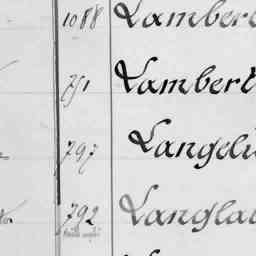 1088 Lambert
751 Lambert
797 Langeli
792 Langla